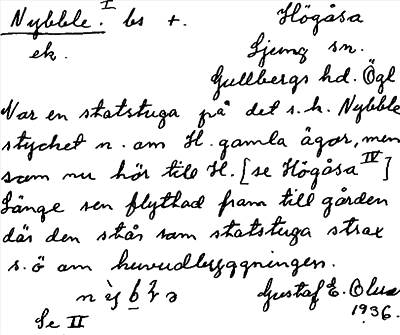 Nybble. I bs +. Högåsa
ek. Ljung sn.
Gullbergs hd. Ögl
Var en statstuga på det s.k. Nybble
stycket n. om H. gamla ägor, men
som nu hör till H. [se Högåsa IV]
Länge sen flyttad fram till gården
där den står som statstuga strax
s.ö om huvudbyggningen.
Gustaf E. Olus
Se II 1936.